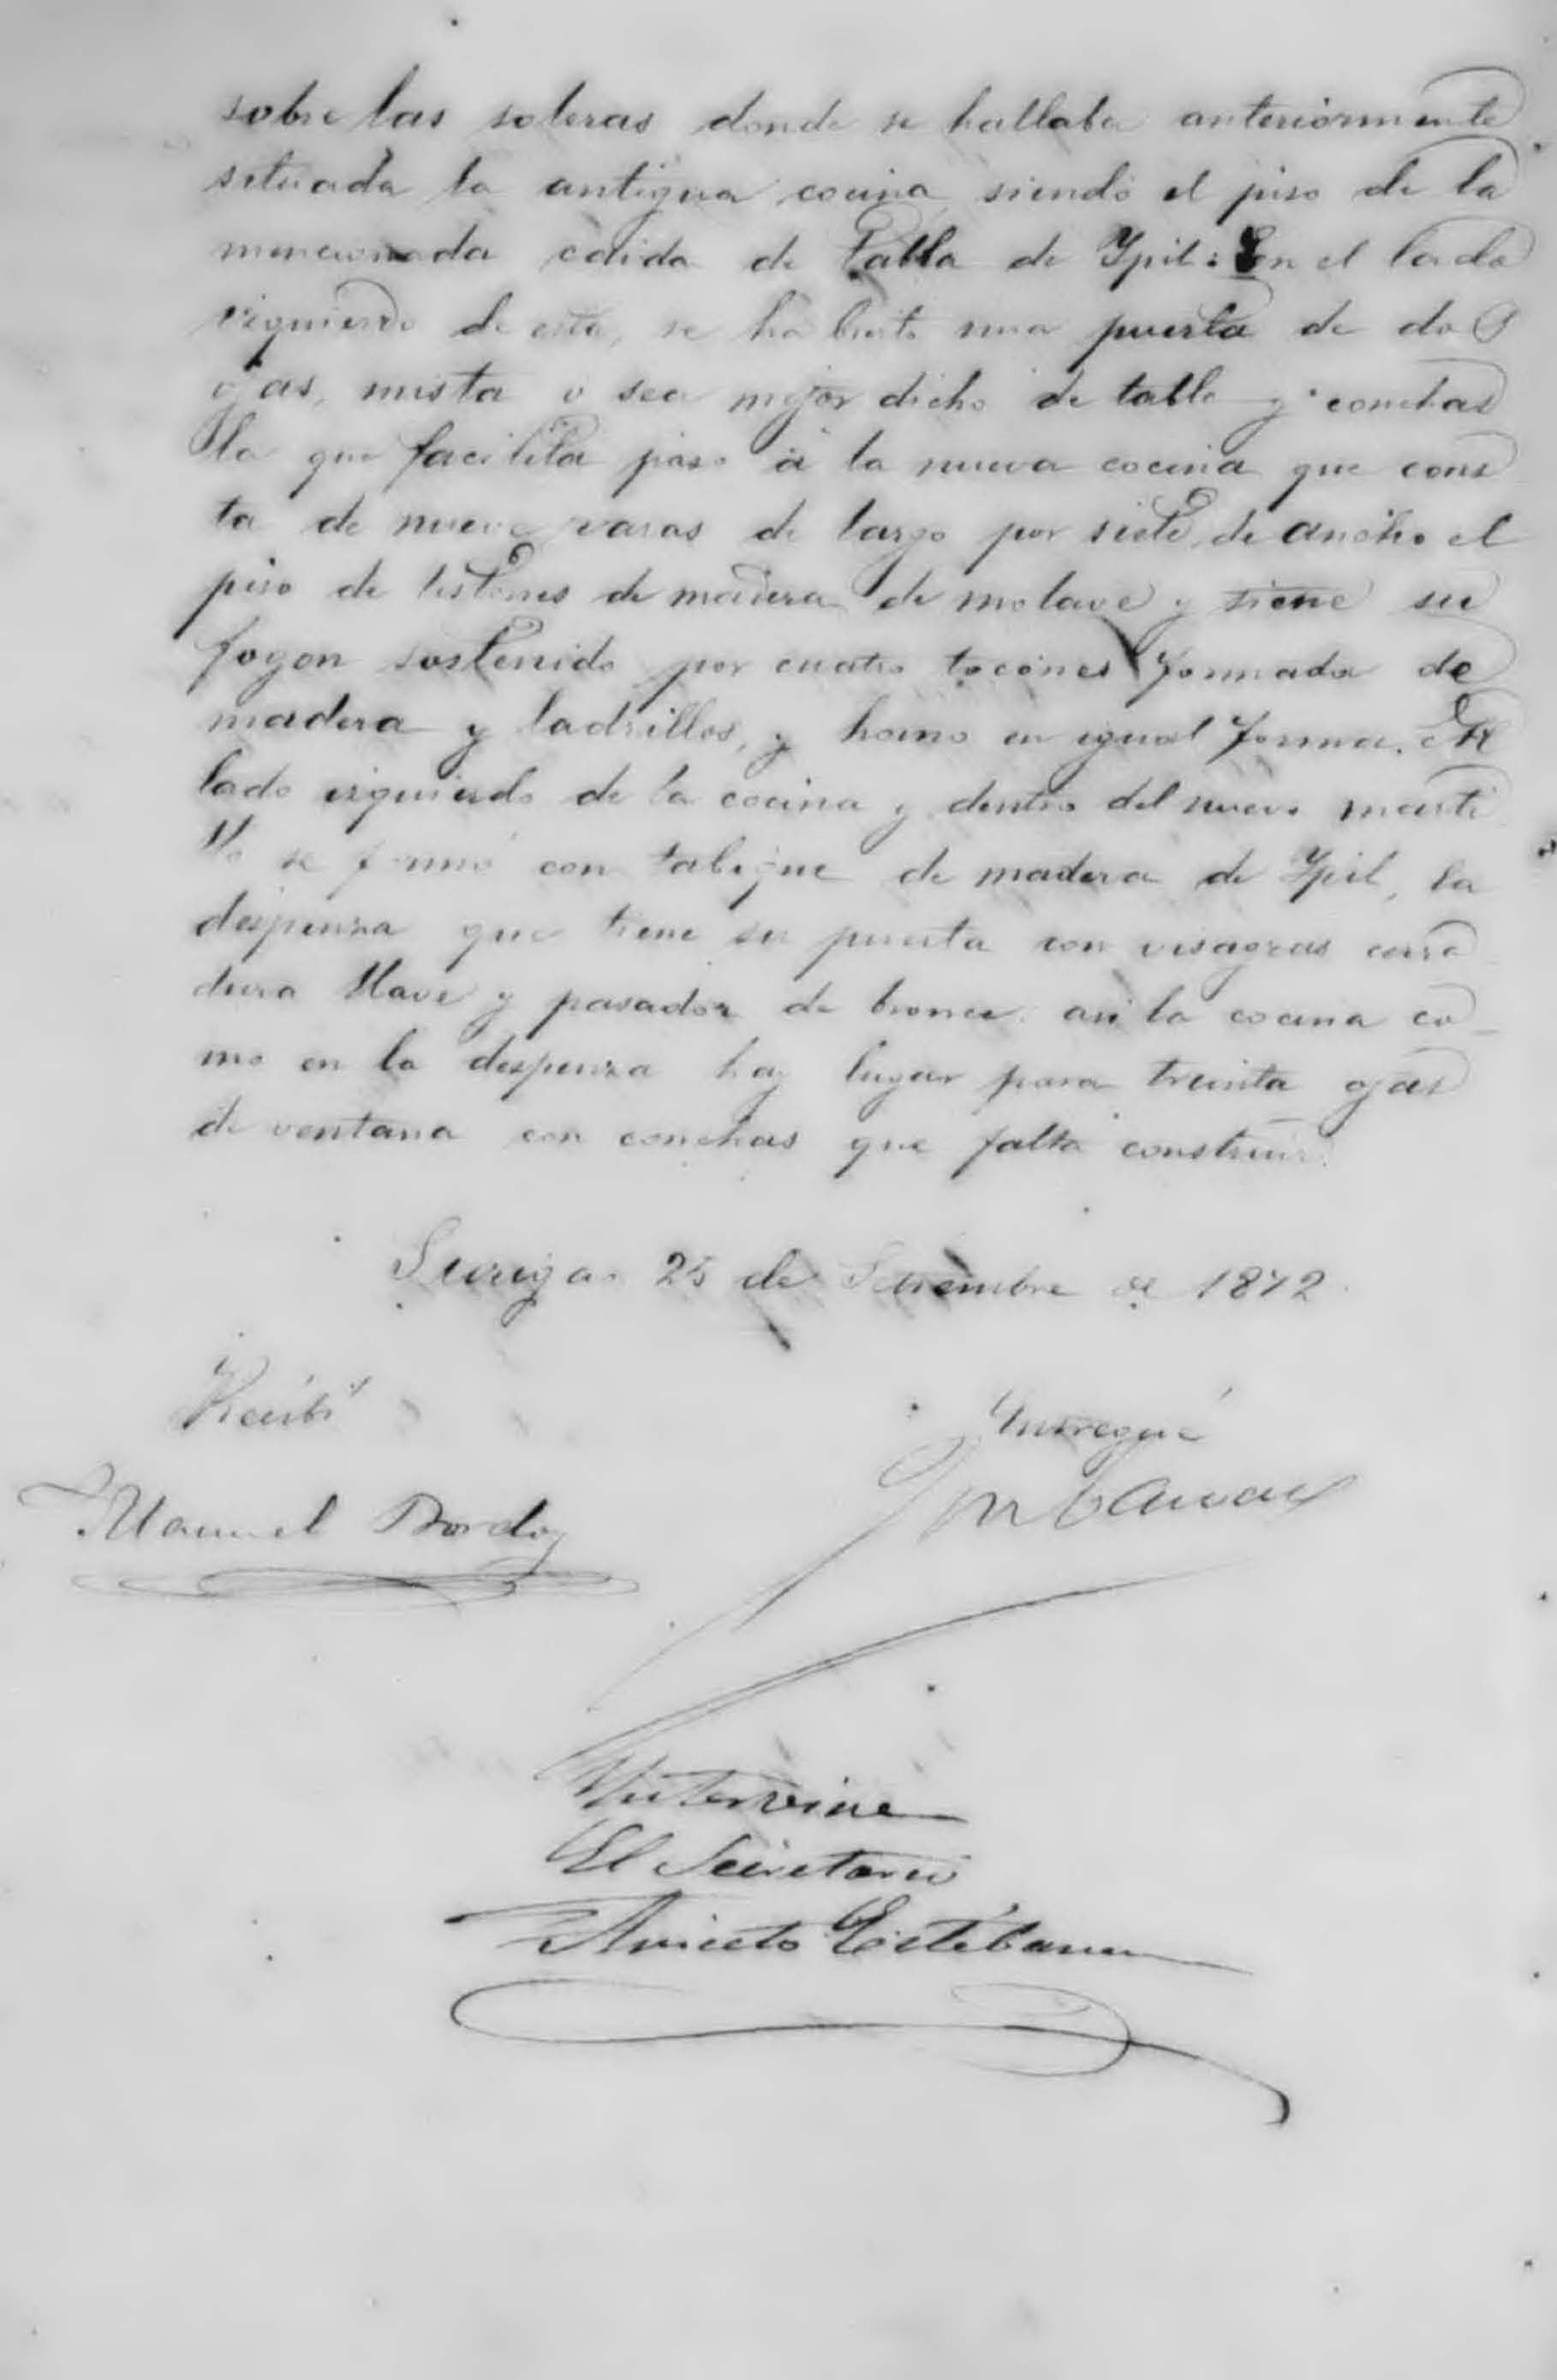 sobre las soleras donde se hallaba anteriormente
situada la antigua cocina, siendo el piso de la
mencionada caida de tabla de Ypil: En el lado
izquierdo de esta, se ha bierto una puerta de dos
ojas, mista ó sea mejor dicho de tabla y conchas
la que facilita paso á la nueva cocina que cons
ta de nueve varas de largo por siete de ancho el
piso de listones de madera de molave y tiene su
fogon sostenido por cuatro tocones formada de
madera y ladrillos, y horno en igual forma. Al
lado izquierdo de la cocina y dentro del nuevo marti
llo se formó con tabique de madera de Ypil, la
despenza que tiene su puerta con visagras cerra
dura llave y pasador de bronce. asi la cocina co
mo en la despenza hay lugar para treinta ojas
de ventana con conchas que falta construir.
Surigao 25 de Setiembre de 1872
Recibí
Entregué
Manuel Bordoy
Intervine
El Secretario
Aniceto Esteban